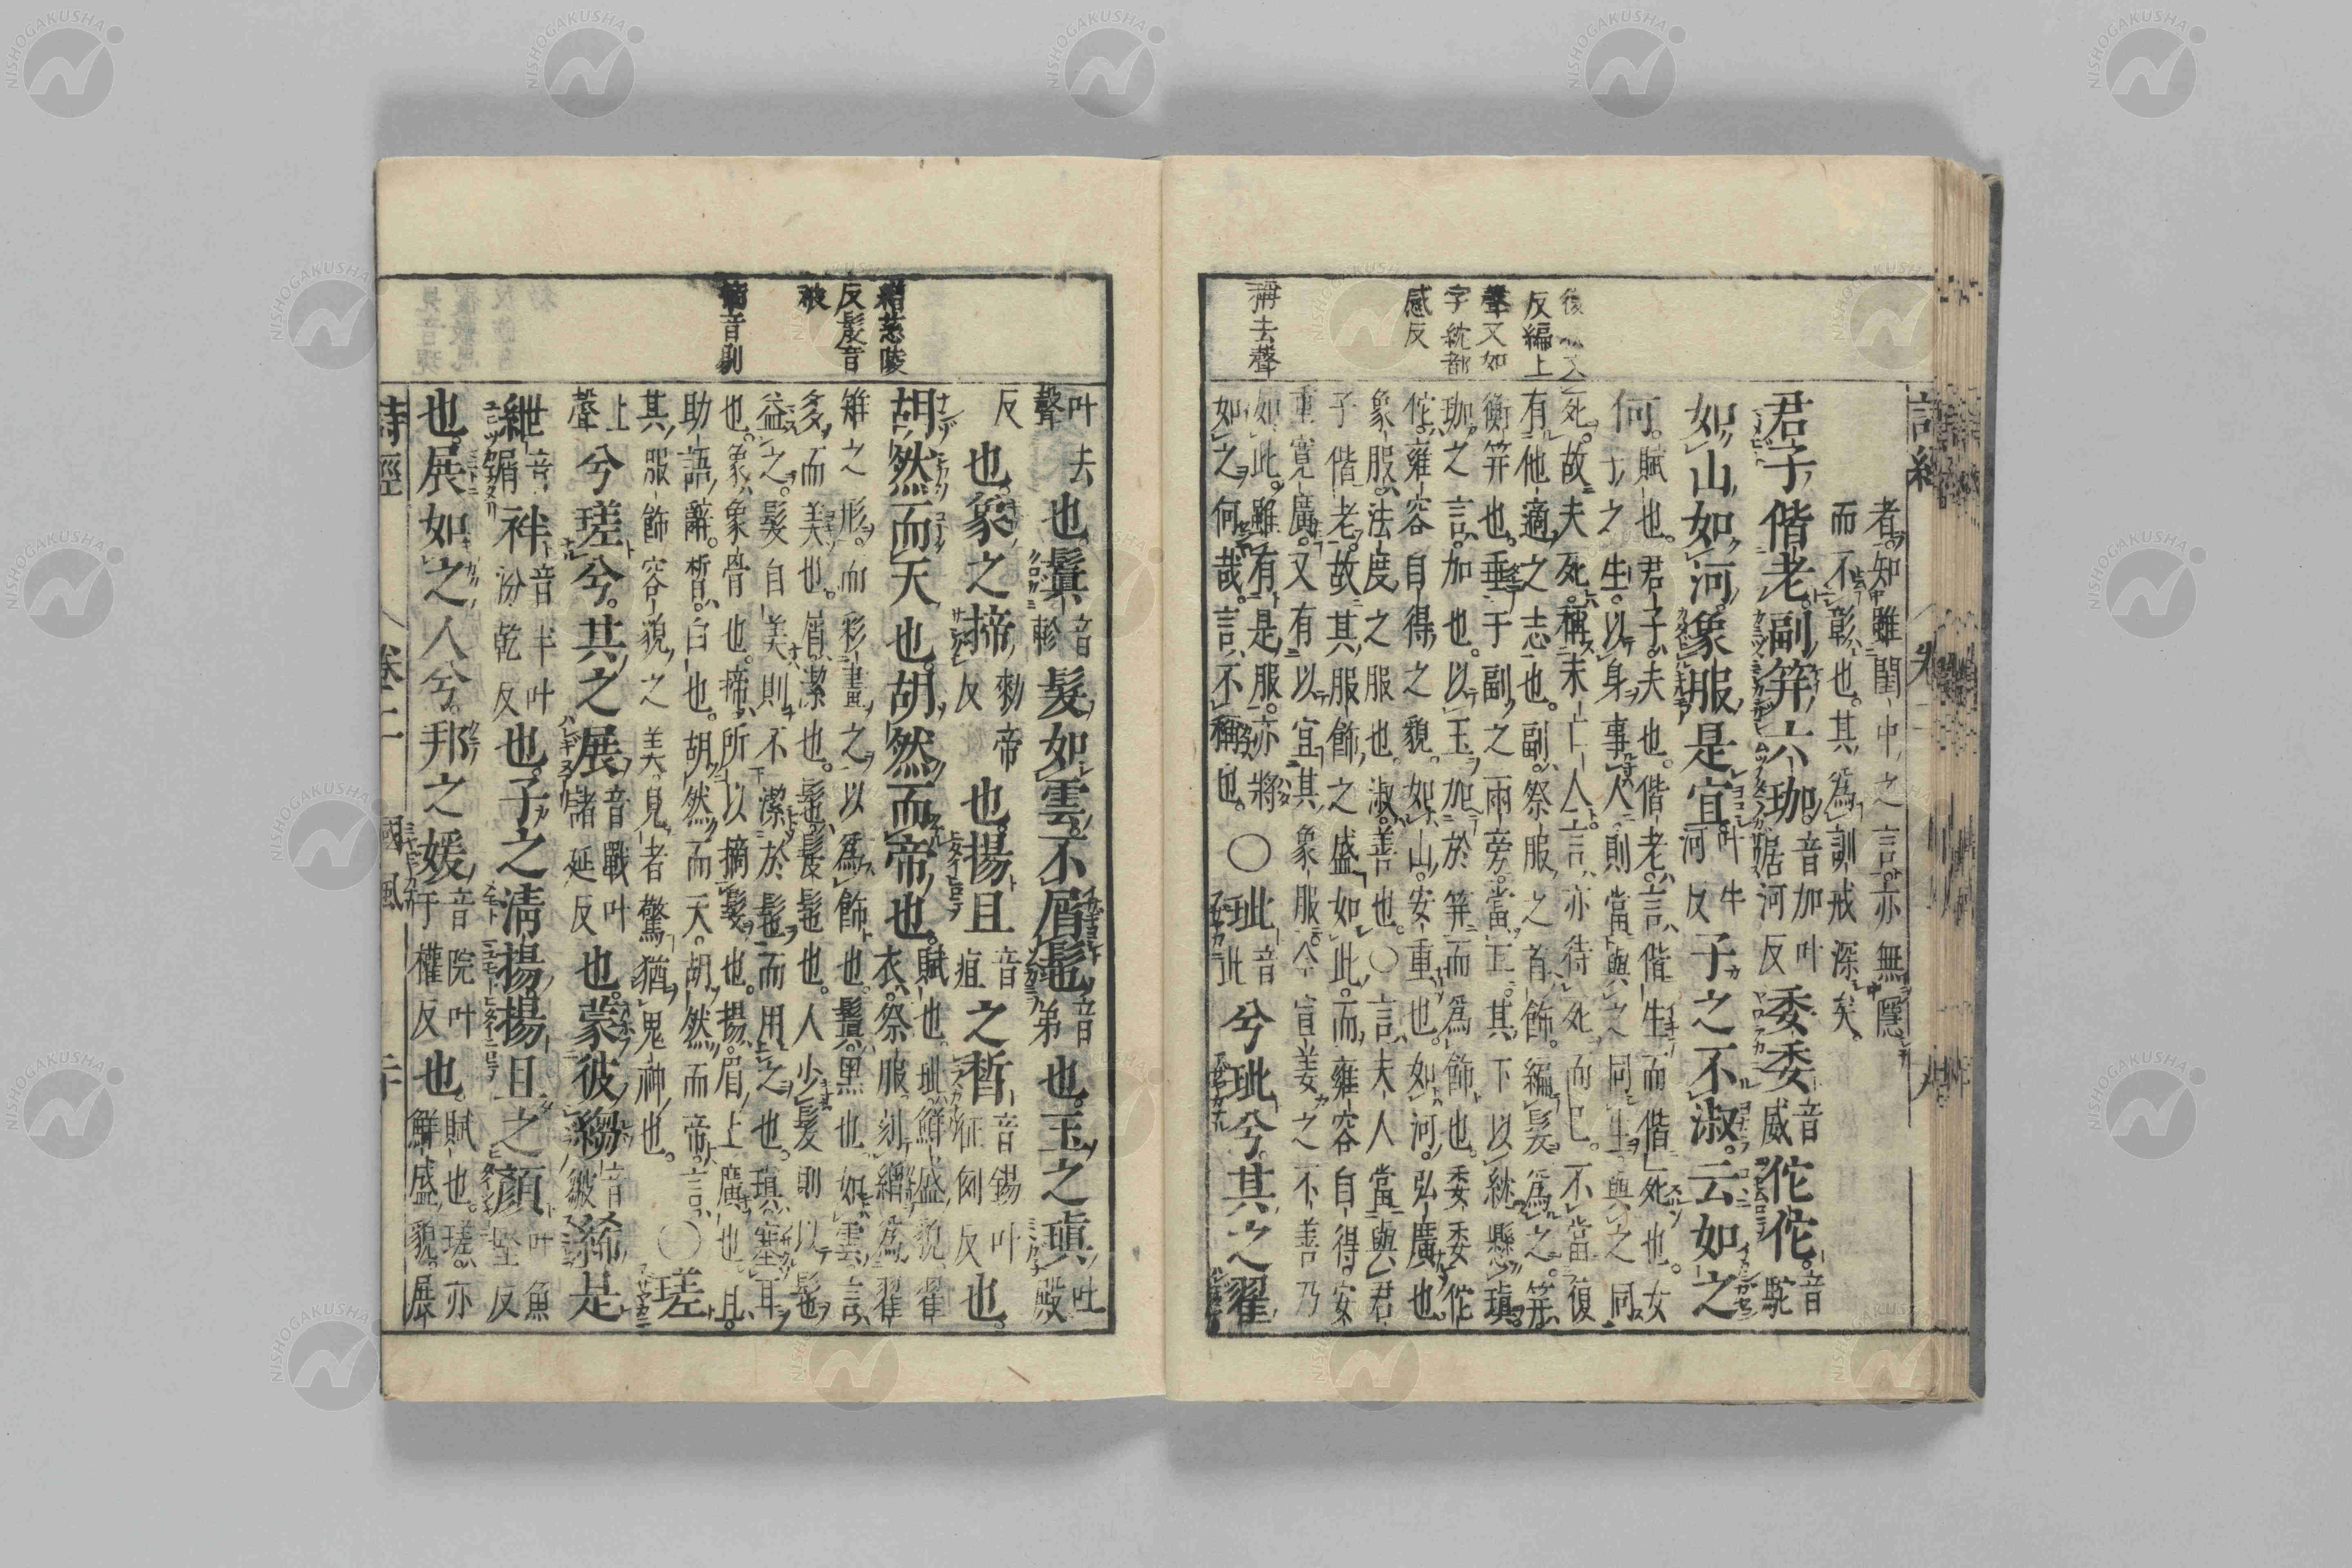 者。知雖閨中之言。亦無隱
而不彰也。其爲訓戒深矣。
君子偕老。副笄六珈。音加叶居河反委委音威佗佗。音駝
如山如河。象服是宜。叶牛河反子之不淑。云如之
何。賦也。君子。夫也。偕老。言偕生而偕死也。女
子之生。以身事人。則當與之同生。與之同
死。故夫死。稱未亡人。言亦待死而已。不當復
有他適之志也。副。祭服之首飾。編髮爲之。笄。
衡笄也。垂于副之兩旁。當耳。其下以紞懸瑱。
珈之言。加也。以玉加於笄而爲飾也。委委佗
佗。雍容自得之貌。如山。安重也。如河。弘廣也。
象服。法度之服也。淑。善也。○言夫人當與君
子偕老。故其服飾之盛如此。而雍容自得。安
重寬廣。又有以宜其象服。今宣姜之不善乃
如此。雖有是服。亦將
如之何哉。言不稱也。○玼音此兮玼兮。其之翟
後
反編上
聲又如
字紞都
感反
稱去聲
叶去聲也。鬒音軫髮如雲。不屑髢音弟也。玉之瑱吐殿
反也。象之揥勑帝反也。揚且音疽之晳音錫叶征例反也。
胡然而天也。胡然而帝也。賦也。玼。鮮盛貌。翟
衣。祭服。刻繒爲翟
雉之形。而彩畫之以爲飾也。鬒。黑也。如雲。言
多而美也。屑。潔也。髢。髲髢也。人少髮則以髢
益之。髮自美。則不潔於髢而用之也。瑱。塞耳
也。象。象骨也。揥。所以摘髮也。揚。眉上廣也。且。
助語辭。晳。白也。胡然而天。胡然而帝。言
其服飾容貌之美。見者驚猶鬼神也。○瑳
上聲兮瑳兮。其之展音戰叶諸延反也。蒙彼縐音皺絺。是
紲音泄屑袢音半叶汾乾反也。子之清揚。揚且之顏叶魚堅反
也。展如之人兮。邦之媛音院叶于權反也。賦也。瑳。亦鮮盛貌。展
繒慈陵
反髲音
被
摘音剔
詩經 卷二 國風